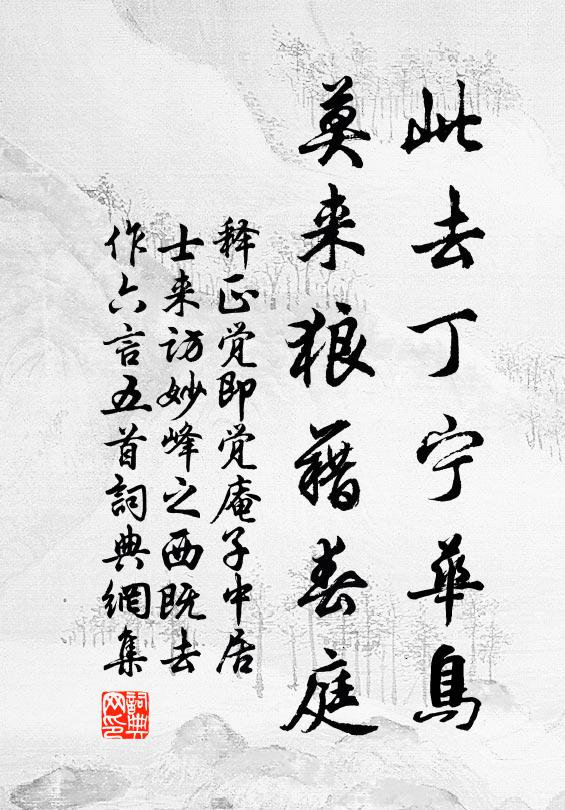 此去丁宁华鸟
莫来狼藉春庭
释正觉即觉庵子中居
士来访妙峰之西既去
作六言五首詞典網集
詞典
网印